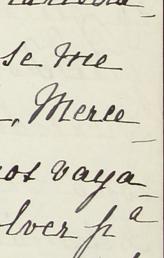 se me
, Merce
nos vaya
olver pª